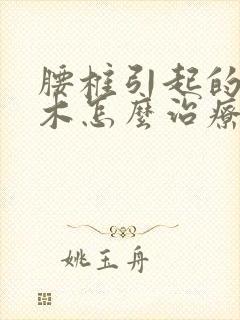 腰椎引起的
木怎麼治療
姚玉舟